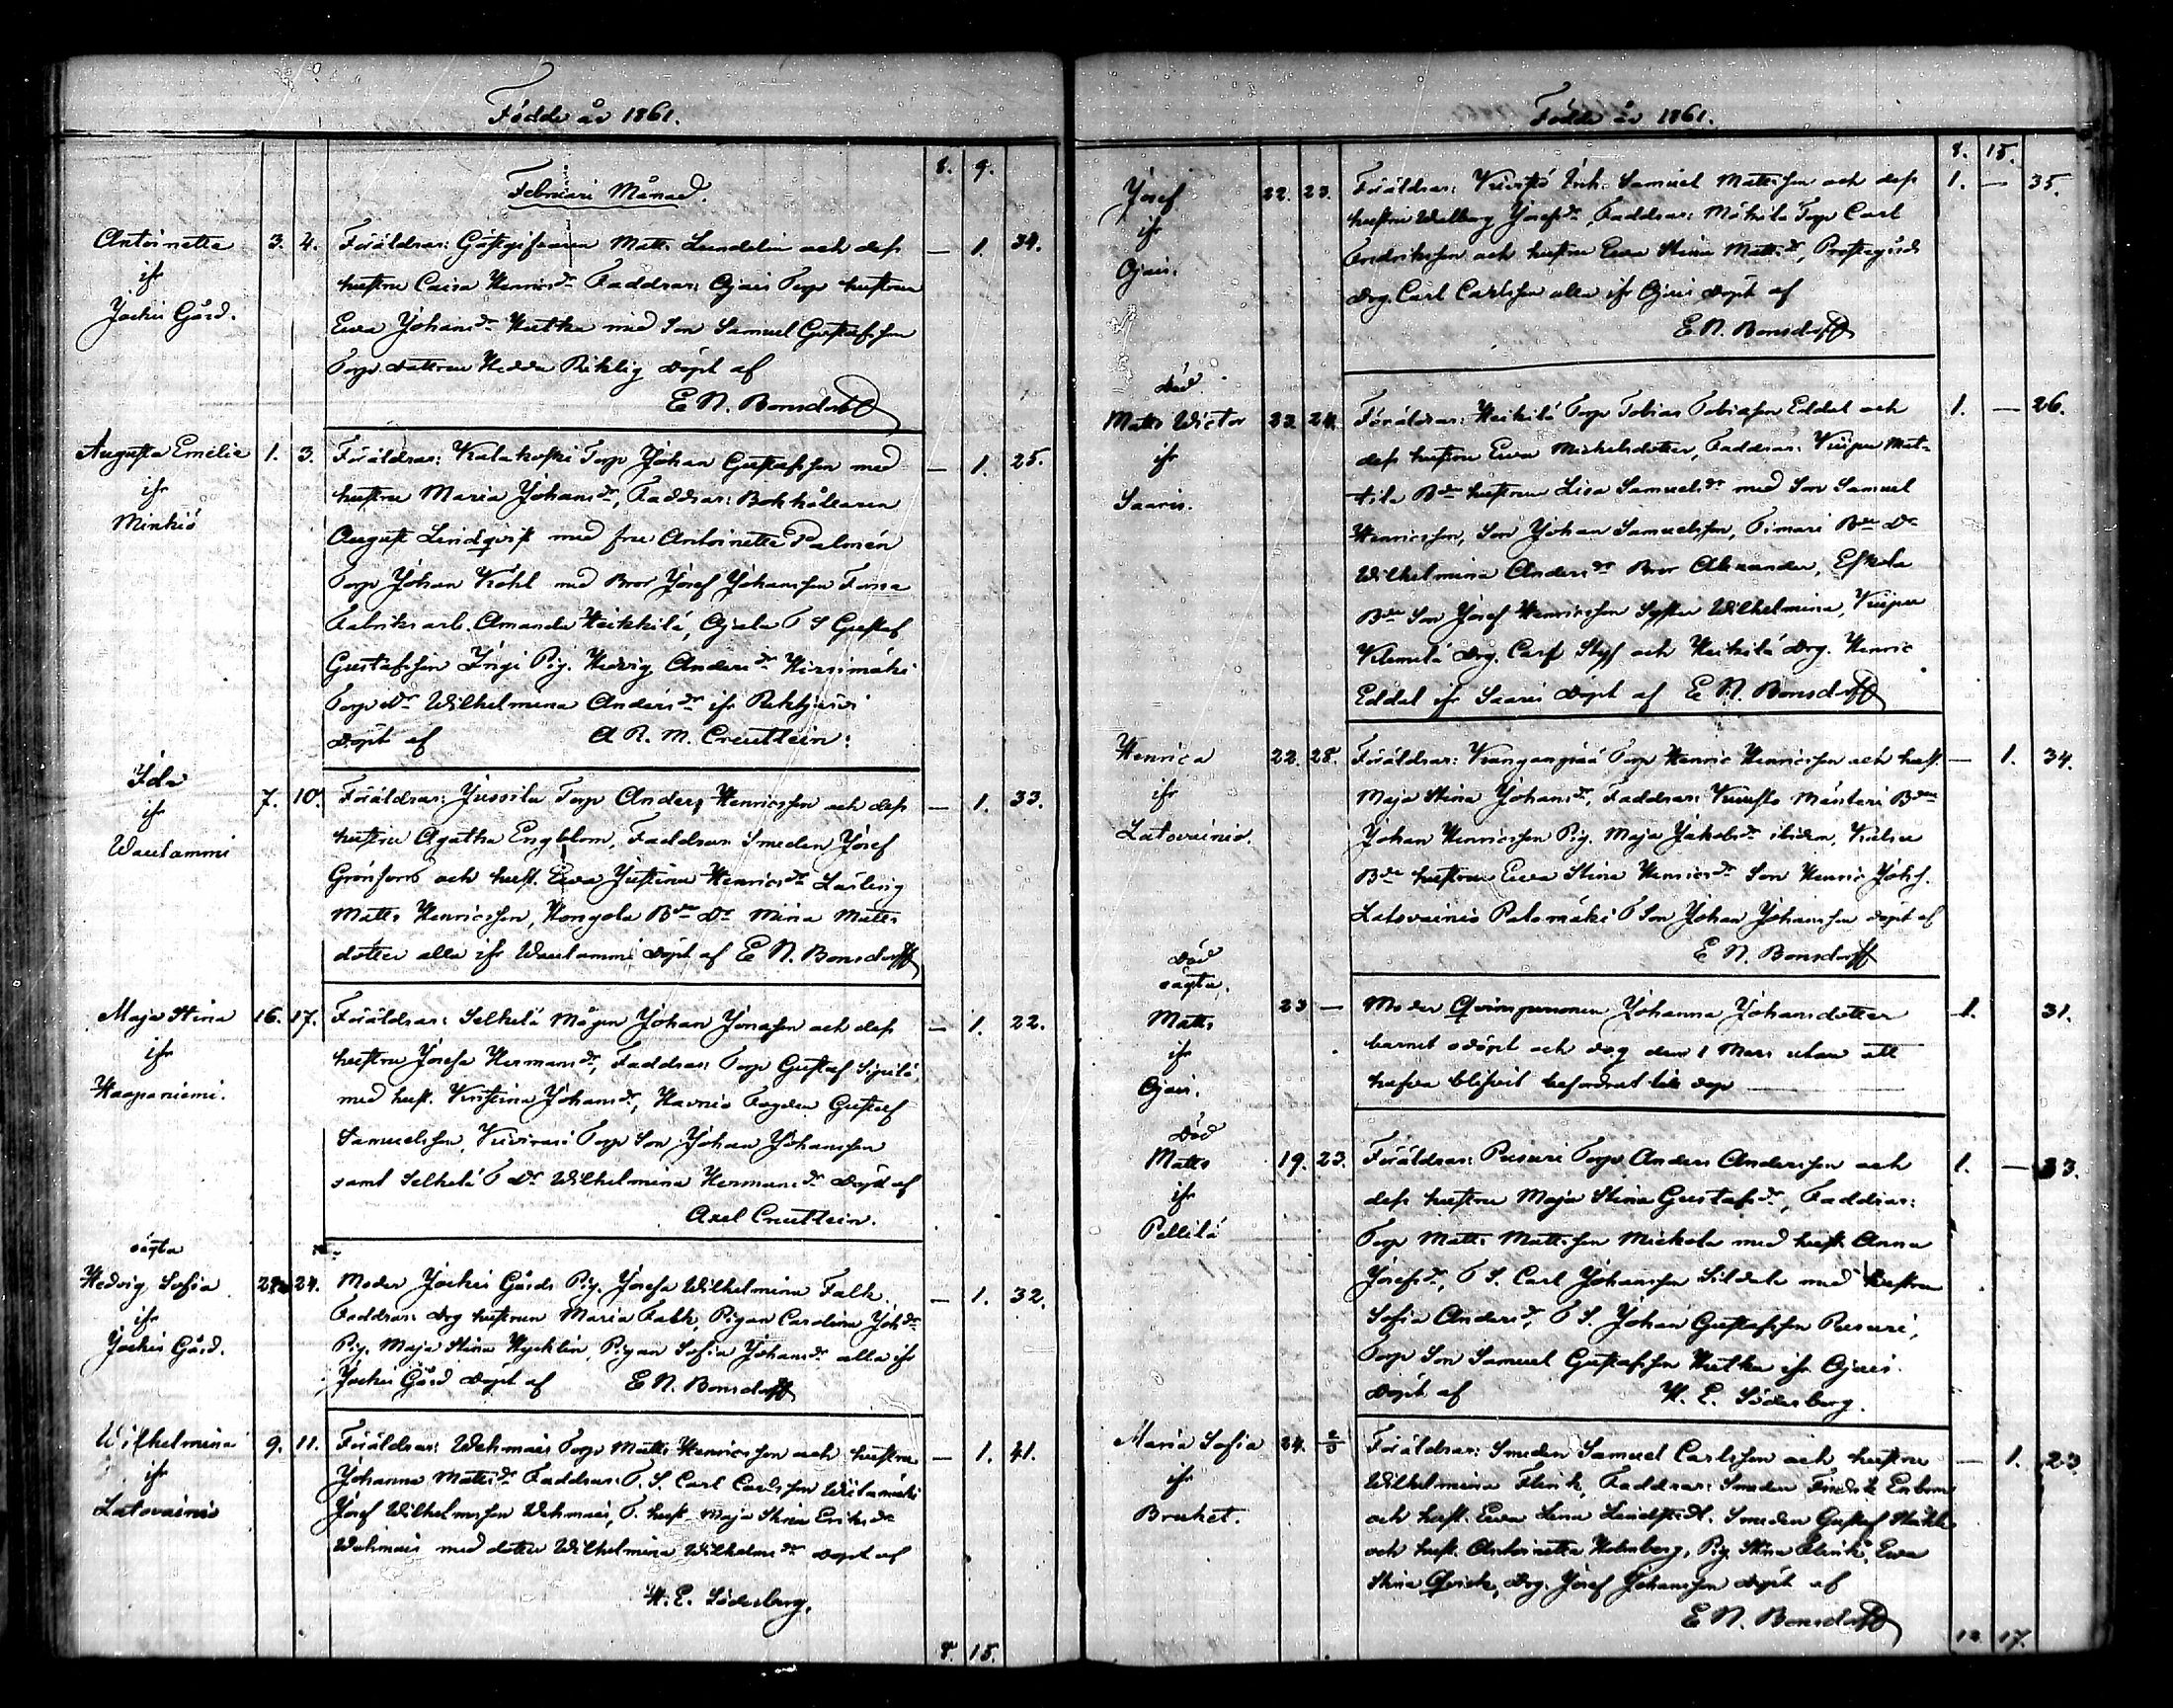 Födde år 1861.
8. 9.
Februari Månad.
Antoinetta 3. 4. Föräldrar: Gästgifvaren Matts Lundelin och dess — 1. 34.
ifr hustru Caisa Henricsdr Faddrar: Ojais Torp hustrun
Jockis Gård. Ewa Johansdr Hutka med Son Samuel Gustafsson
Torp. dottren Hedda Riklig döpt af
E N. Bonsdorff
Augusta Emelie 1. 3. Föräldrar: Kalakoski Torp Johan Gustafsson med — 1. 25.
ifr hustru Maria Johansdr, Faddrar: Bokhållaren
Minkiö August Lindqvist med fru Antoinette Palmén
Torp Johan Köhl med Bror Josef Johansson Forssa
Fabriks arb. Amanda Heikkilä, Ojala T S Gustaf
Gustafsson Pig. Hedvig Andersdr Hirsimäki
Torp. Dr Wilhelmina Andersdr ifr
döpt af A R. M. Creutlein.
Ida 7. 10. Föräldrar: Jussila Torp Anders Henricsson och dess — 1. 33.
ifr hustru Agatha Engblom, Faddrar: Smeden Josef
Waulammi Grönfors och hust. Ewa Justina Henricsdr Lärling
Matts Henricsson, Hongola Bde Dr Mina Matts
dotter alla ifr Waulammi döpt af E N. Bonsdorff
Maja Stina 16. 17. Föräldrar: Selkelä Mågen Johan Jonasson och dess — 1. 22.
ifr hustru Josefa Hermansdr, Faddrar: Torp Gustaf Sipilä
Haapaniemi. med hust. Kristina Johansdr, Fogden Gustaf
Samuelsson, Torp Son Johan Johansson
samt Selkelä T Dr Wilhelmina Hermansdr döpt af
Axel Creutlein.
oägta
Hedvig Sofia 24. Moder Jockis Gårds Pig. Josefa Wilhelmina Falk — 1. 32.
ifr Faddrar: Drg hustrun Maria Falk, Pigan Carolina Johdr
Jockis Gård. Pig. Maja Stina Hycklin, Pigan Sofia Johansdr alla ifr
Jockis Gård döpt af E N. Bonsdorff
Wilhelmina 9. 11. Föräldrar: Wehmais Torp Matts Henricsson och hustru — 1. 41.
ifr Johanna Mattsdr Faddrar: T. S. Carl Carlsson
Latovainio Josef Wilhelmsson Wehmais, T. hust. Maja Stina Eriksdr
Wehmais med dotter Wilhelmina Wilhelmsdr döpt af
H. E. Söderberg.
8. 15.
Födde år 1861.
8. 15.
Josef 22. 23. Föräldrar: Inh. Samuel Mattsson och dess 1. — 35.
ifr hustru Walborg Josefsdr, Faddrar: Mäkilä Torp Carl
Ojais. Fredriksson och hustru Ewa Stina Mattsdr, Prostgårds
Drg. Carl Carlsson alla ifr Ojais döpt af
E. N. Bonsdorff
död
Matts Wictor 23. 24. Föräldrar: Heikilä Torp Tobias Tobiasson Eddal och 1. — 26.
ifr dess hustru Ewa Mickelsdotter, Faddrar: Mat-
Saaris. tila Bde hustrun Lisa Samuelsdr med Son Samuel
Henricsson, Son Johan Samuelsson, Simari Bde Dr
Wilhelmina Andersdr Bror Alexander, Eskola
Bde Son Josef Henricsson Syster Wilhelmina,
Drg. Carl och Heikilä Drg. Henric
Eddal ifr Saaris döpt af E. N. Bonsdorff
Henrica 22. 28. Föräldrar: Kangaspää Torp Henric Henricsson och hust. — 1. 34.
ifr Maja Stina Johansdr, Faddrar: Mäntäri Bden
Latovainio. Johan Henricsson Pig. Maja Jakobsdr ibidem,
Bde hustrun Ewa Stina Henricsdr Son Henric Johs.
Latovainio Palomäki T Son Johan Johansson döpt af
E N. Bonsdorff
död
oägta
Matts 23 — Moder Qvinspersonen Johanna Johansdotter 1. 31.
ifr barnet odöpt och dog den 1 Mars utan att
Ojais. hafva blifvit befordrat till dop
död
Matts 19. 23. Föräldrar: Pusuri Torp Anders Andersson och 1. — 33.
ifr dess hustru Maja Stina Gustafsdr, Faddrar:
Pellilä Torp Matts Mattsson Mickola med hust. Anna
Josefsdr, T S. Carl Johansson med hustru
Sofia Andersdr, T S. Johan Gustafsson Pusuri,
Torp Son Samuel Gustafsson Hutka ifr Ojais
döpt af H. E. Söderberg.
Maria Sofia 24. 2/3 Föräldrar: Smeden Samuel Carlsson och hustru — 1. 23.
ifr Wilhelmina Flink, Faddrar: Smeden Fredrik
Bruket. och hust. Ewa Lena Lindstedt. Smeden Gustaf
och hust. Antoinetta Holmberg, Pig. Stina Flink, Ewa
Stina Qvick, Drg. Josef Johansson döpt af
E N. Bonsdorff
12 17.